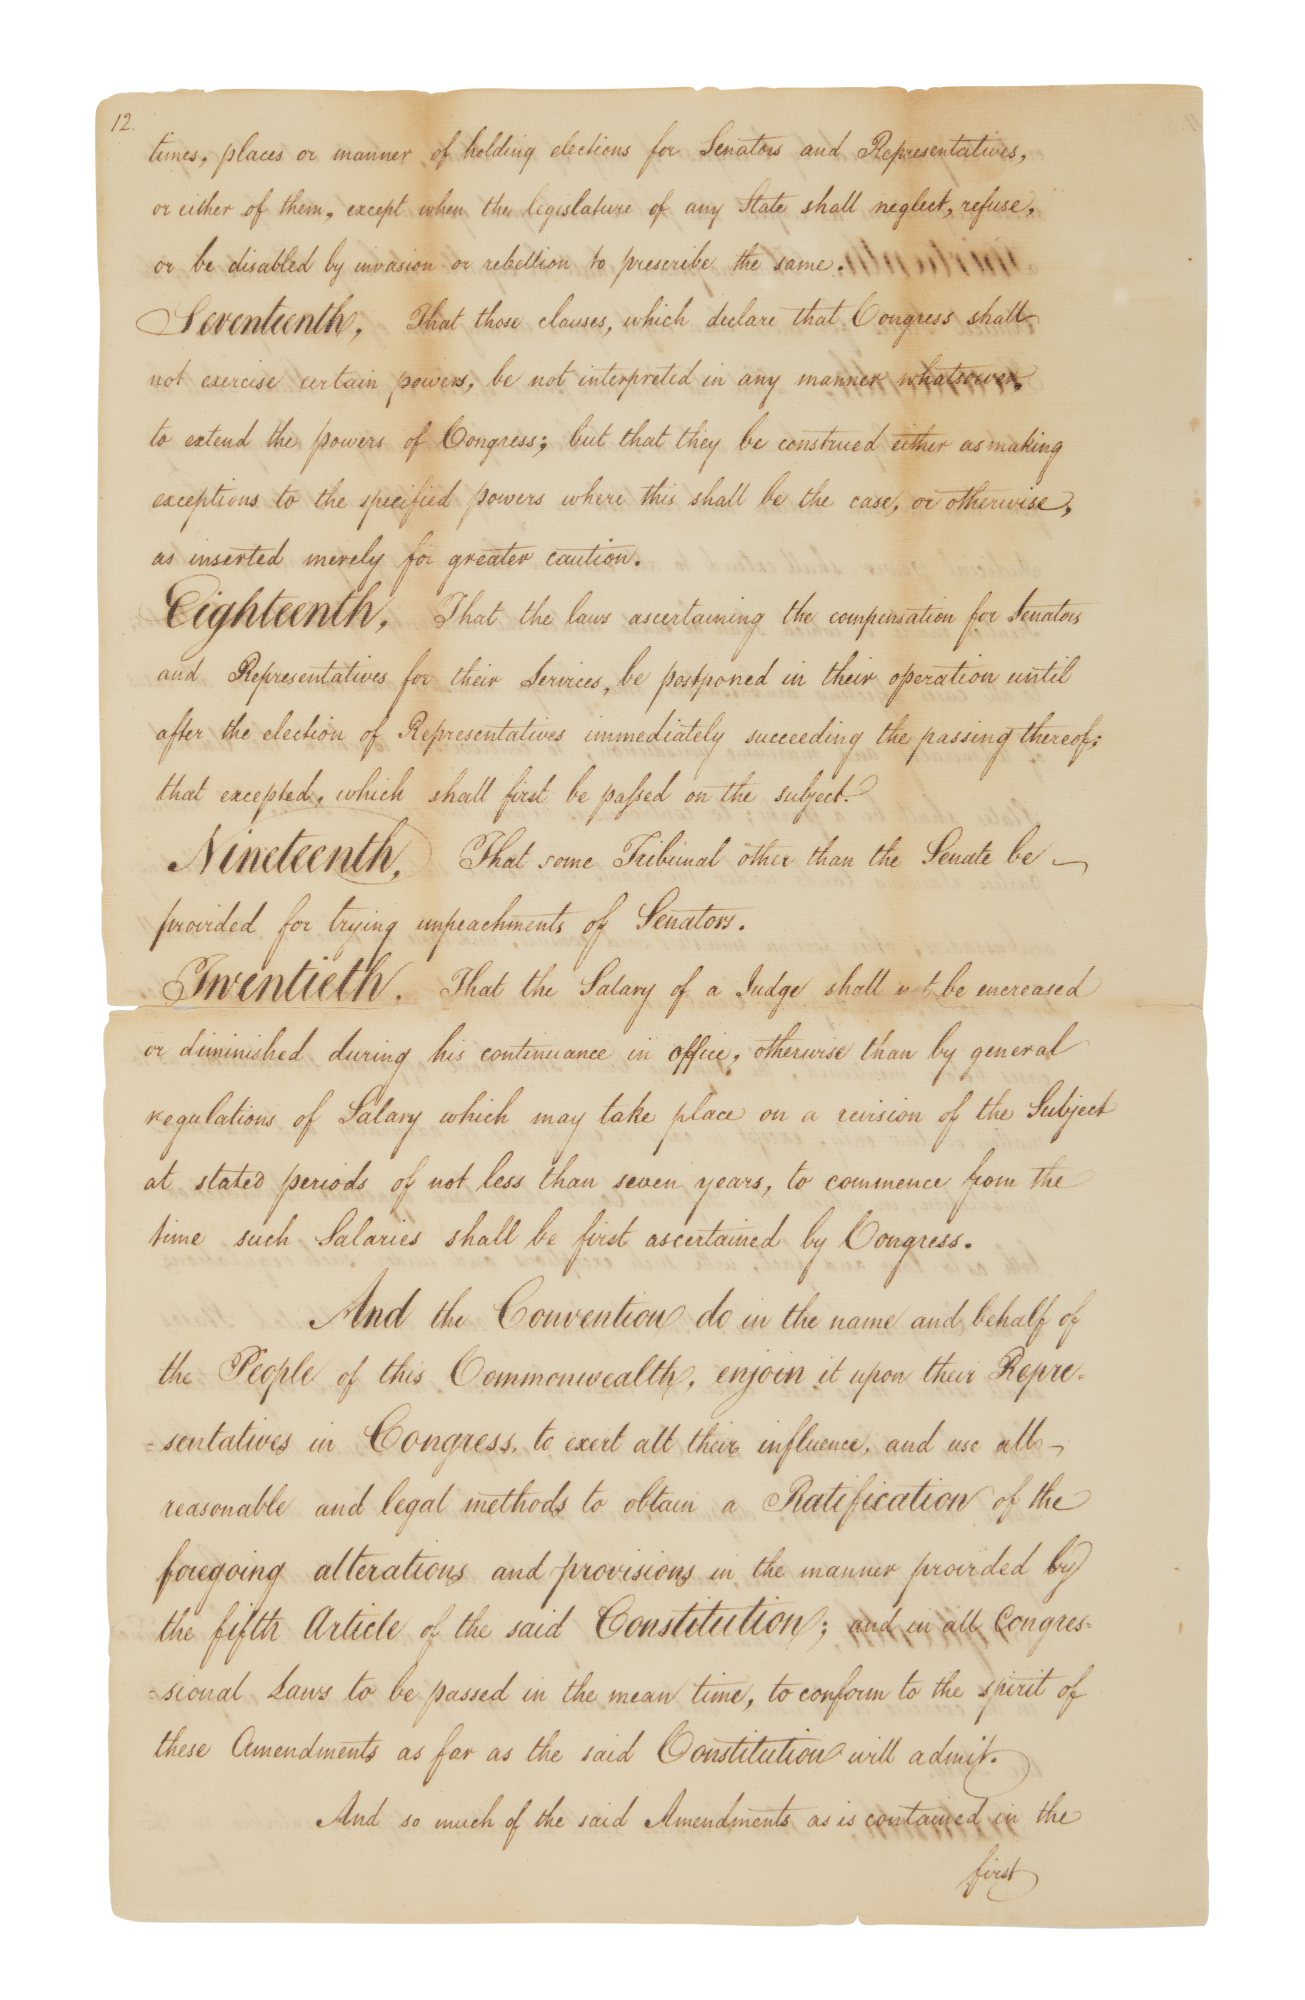 12.
times, places or manner of holding elections for Senators and Representatives,
or either of them, except when the legislature of any State shall neglect, refuse,
or be disabled by invasion or rebellion to prescribe the same.
Seventeenth, That those clauses, which declare that Congress shall
not exercise certain powers, be not interpreted in any manner whatsoever,
to extend the powers of Congress; but that they be construed either as making
exceptions to the specified powers where this shall be the case, or otherwise,
as inserted merely for greater caution.
Eighteenth, That the laws ascertaining the compensation for Senators
and Representatives for their Services, be postponed in their operation until
after the election of Representatives immediately succeeding the passing thereof;
that excepted, which shall first be passed on the subject.
Nineteenth, That some Tribunal other than the Senate be
provided for trying impeachments of Senators.
Twentieth. That the Salary of a Judge shall not be encreased
or diminished during his continuance in office, otherwise than by general
regulations of Salary which may take place on a revision of the Subject
at stated periods of not less than seven years, to commence from the
time such Salaries shall be first ascertained by Congress.
And the Convention do in the name and behalf of
the People of this Commonwealth, enjoin it upon their Repre-
=sentatives in Congress, to exert all their influence, and use all
reasonable and legal methods to obtain a Ratification of the
foregoing alterations and provisions in the manner provided by
the fifth Article of the said Constitution; and in all Congres=
=sional Laws to be passed in the mean time, to conform to the spirit of
these Amendments as far as the said Constitution will admit.
And so much of the said Amendments as is contained in the
first